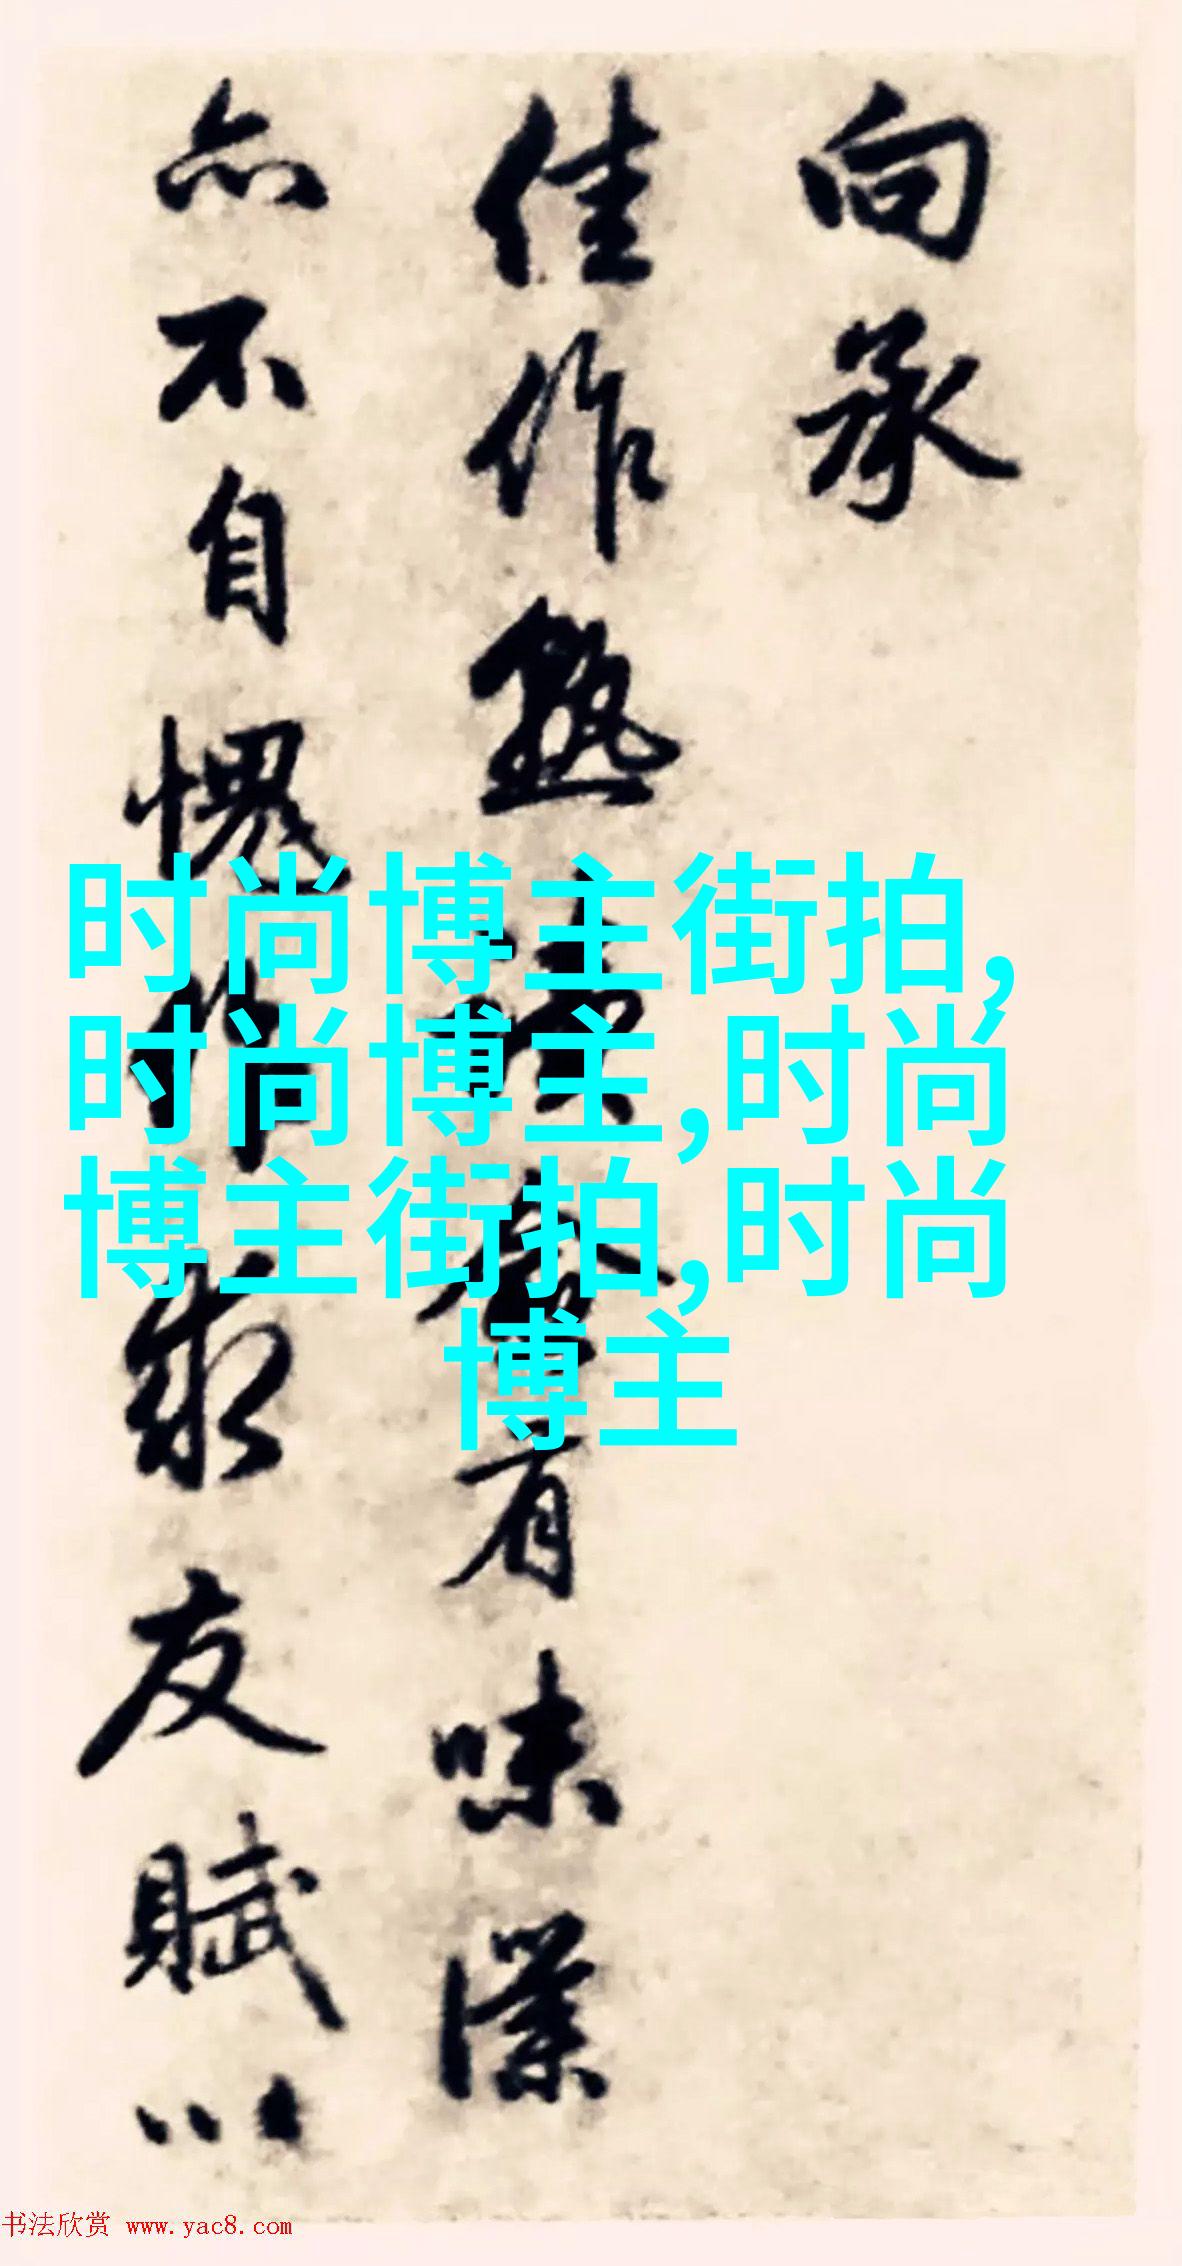 向承
佳作熟讀有味僕
亦不自愧作求友賦以
时尚博主街拍,
时尚博主,时尚
博主街拍,时尚
博主
书法欣赏 www.yac8.com